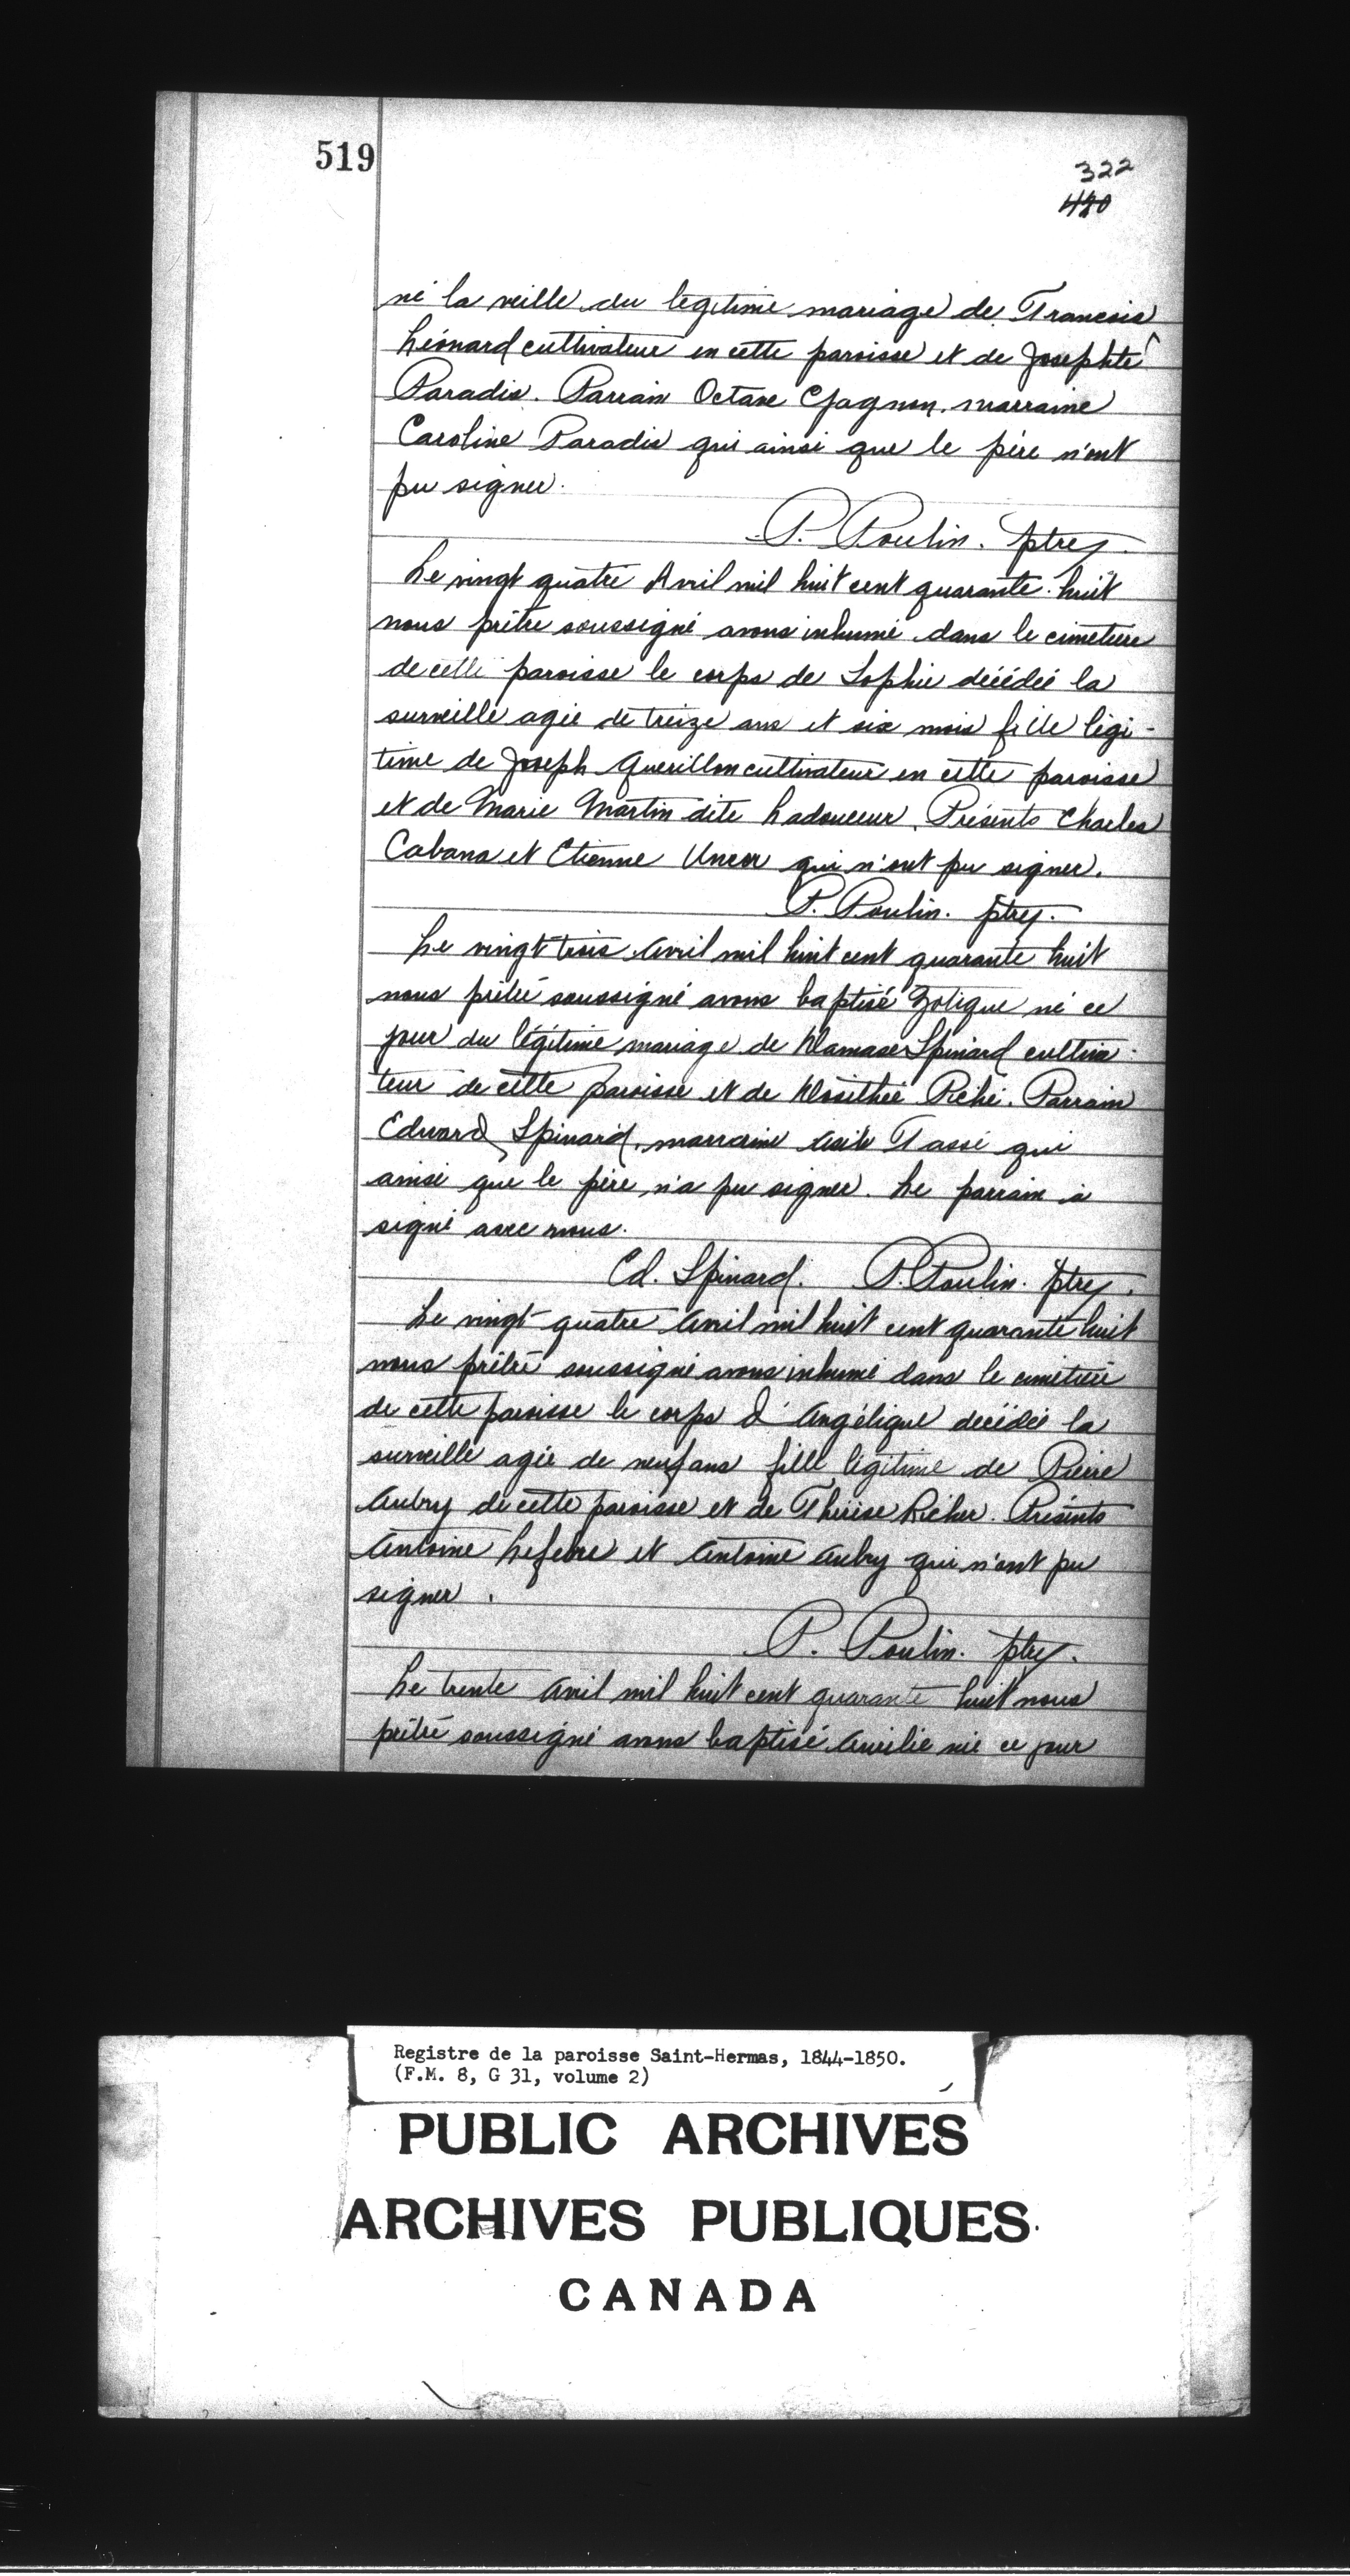 519
322
420
né la veille du légitime mariage de Francois
Léonard cultivateur en cette paroisse et de Josephte
Paradis. Parrain Octave Gagnon, marraine
Caroline Paradis qui ainsi que le père n'ont
pu signer.
P. Poulin. ptre
Le vingt quatre Avril mil huit cent quarante-huit
nous prêtre soussigné avons inhumé dans le cimetière
de cette paroisse le corps de Sophie décédée la
surveille agée de treize ans et six mois fille légi-
time de Joseph Guerillon cultivateur en cette paroisse
et de Marie Martin dite Ladouceur. Présents Charles
Cabana et Etienne qui n'ont pu signer.
P. Poulin. ptre
Le vingt trois Avril mil huit cent quarante huit
nous prêtre soussigné avons baptisé Zotique né ce
jour du légitime mariage de Damase Spinard cultiva-
teur de cette paroisse et de Dosithée Riché. Parrain
Edward Spinard, marraine Tassé qui
ainsi que le père n'a pu signer. Le parrain a
signé avec nous.
Ed. Spinard. P. Poulin. ptre
Le vingt-quatre Avril mil huit cent quarante huit
nous prêtre soussigné avons inhumé dans le cimetière
de cette paroisse le corps d'Angélique décédée la
surveille agée de neuf ans fille légitime de Pierre
Aubry de cette paroisse et de Thérèse Richer. Présents
Antoine Lefebre et Antoine Aubry qui n'ont pu
signer.
P. Poulin. ptre
Le trente Avril mil huit cent quarante huit nous
prêtre soussigné avons baptisé Aurélie née ce jour
Registre de la paroisse Saint-Hermas, 1844-1850.
(F.M. 8, G 31, volume 2)
PUBLIC ARCHIVES
ARCHIVES PUBLIQUES
CANADA